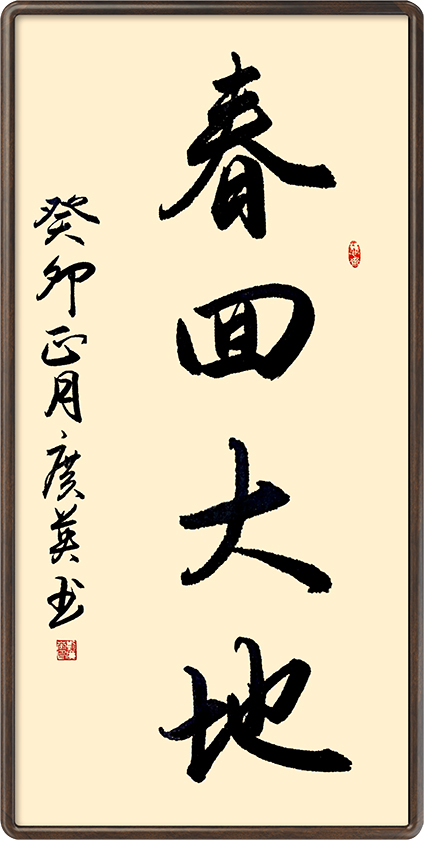 春回大地
癸卯正月广英书